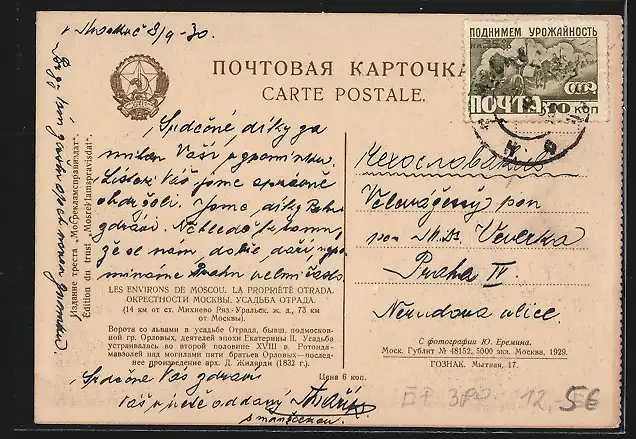 v Moskvě 8/9 - 30.
ПОДНИМЕМ УРОЖАЙНОСТЬ
ПОЧТА 10 КОП
СССР
ПОЧТОВАЯ КАРТОЧКА
CARTE POSTALE.
Srdečné díky za
milou Vaši vzpomínku.
Lístek Váš jsme správně
obdrželi. Jsme díky Bohu
zdrávi. Nehledě k tomu,
že se nám dobře daří, vzpo
mínáme Prahu velmi často
Чехословакия
Velevážený pan
pan Dr. Veverka
Praha IV.
Nerudova ulice.
Издание треста „Мосрекламсправиздат".
Edition du trust „Mosreklamspravisdat".
LES ENVIRONS DE MOSCOU. LA PROPRIÉTÉ OTRADA.
ОКРЕСТНОСТИ МОСКВЫ. УСАДЬБА ОТРАДА.
(14 км от ст. Михнево Ряз.-Уральск. ж. д., 73 км
от Москвы).
Ворота со львами в усадьбе Отрада, бывш. подмосков-
ной гр. Орловых, деятелей эпохи Екатерины II. Усадьба
устраивалась во второй половине XVIII в. Ротонда-
мавзолей над могилами пяти братьев Орловых—послед-
нее произведение арх. Д. Жилярди (1832 г.).
Цена 6 коп.
С фотографии Ю. Еремина.
Моск. Гублит № 48152, 5000 экз. Москва, 1929.
ГОЗНАК. Мытная, 17.
Srdečně Vás zdraví
Váš oddaný
s manželkou.
380 12,- 56